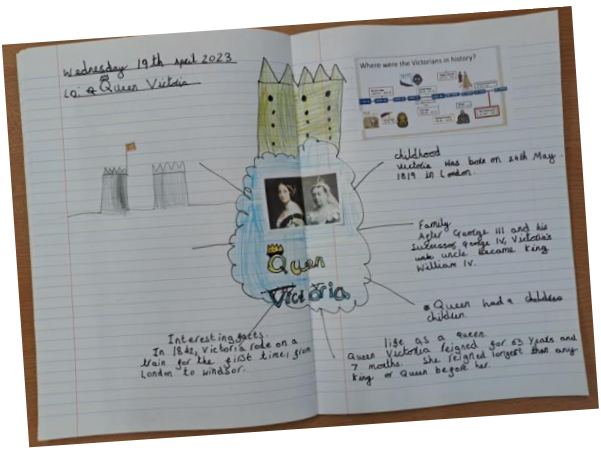 Wednesday 19th April 2023
LO: Queen Victoria
Where were the Victorians in history?
childhood
Victoria was born on 24th May
1819 in London.
Family
After George III and his
Successor, George IV, Victoria's
uncle became King
William IV.
Queen
Victoria
Queen had a
children.
Interesting facts.
In 1842, Victoria rode on a
train for the first time, from
London to Windsor.
life as a queen
Queen Victoria reigned for 63 years and
7 months. She reigned longest than any
King or Queen before her.